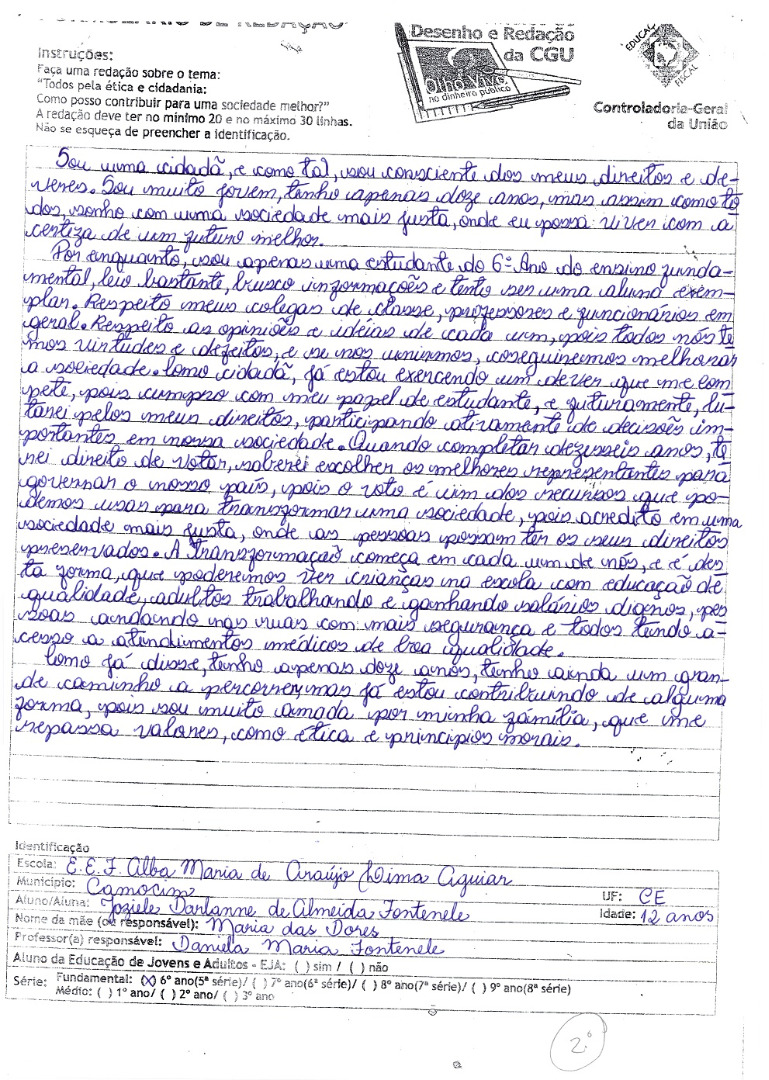 FORMULÁRIO DE REDAÇÃO
Desenho e Redação
da CGU
Olho Vivo
no dinheiro público
EDUCAÇÃO
FISCAL
Controladoria-Geral
da União
Instruções:
Faça uma redação sobre o tema:
"Todos pela ética e cidadania:
Como posso contribuir para uma sociedade melhor?"
A redação deve ter no mínimo 20 e no máximo 30 linhas.
Não se esqueça de preencher a identificação.
Sou uma cidadã, e como tal, sou consciente dos meus direitos e de-
veres. Sou muito jovem, tenho apenas doze anos, mas assim como to
dos, sonho com uma sociedade mais justa, onde eu possa viver com a
certiza de um futuro melhor.
Por enquanto, sou apenas uma estudante do 6º Ano do ensino funda-
mental, leio bastante, busco informações e tento ser uma aluna exem-
plar. Respeito meus colegas de classe, professores e funcionários em
geral. Respeito as opiniões e ideias de cada um, pois todos nós te
mos virtudes e defeitos, e se nos unirmos, coseguiremos melhorar
a sociedade. Como cidadã, já estou exercendo um dever que me com
pete, pois cumpro com meu papel de estudante, e futuramente, lu-
tarei pelos meus direitos, participando ativamente de decisões im-
portantes em nossa sociedade. Quando completar dezesseis anos, te
rei direito de votar, saberei escolher os melhores representantes para
governar o nosso país, pois o voto é um dos recursos que po-
demos usar para transformar uma sociedade, pois acredito em uma
sociedade mais justa, onde as pessoas possam ter os seus direitos
preservados. A transformação começa em cada um de nós, e é des
ta forma, que poderemos ver crianças na escola com educação de
qualidade, adultos trabalhando e ganhando salários dignos, pes
soas andando nas ruas com mais segurança e todos tendo a-
cesso a atendimentos médicos de boa qualidade.
Como já disse, tenho apenas doze anos, tenho ainda um gran-
de caminho a percorrer, mas já estou contribuindo de alguma
forma, pois sou muito amada por minha família, que me
repassa valores, como ética e princípios morais.
Identificação
Escola: E.E.F. Alba Maria de Araújo Lima Aguiar
Município: Camocim UF: CE
Aluno/Aluna: Joziele Darlanne de Almeida Fontenele Idade: 12 anos
Nome da mãe (ou responsável): Maria das Dores
Professor(a) responsável: Daniela Maria Fontenele
Aluno da Educação de Jovens e Adultos - EJA: ( ) sim / ( ) não
Série: Fundamental: (X) 6º ano(5ª série)/ ( ) 7º ano(6ª série)/ ( ) 8º ano(7ª série)/ ( ) 9º ano(8ª série)
Médio: ( ) 1º ano/ ( ) 2º ano/ ( ) 3º ano
2º